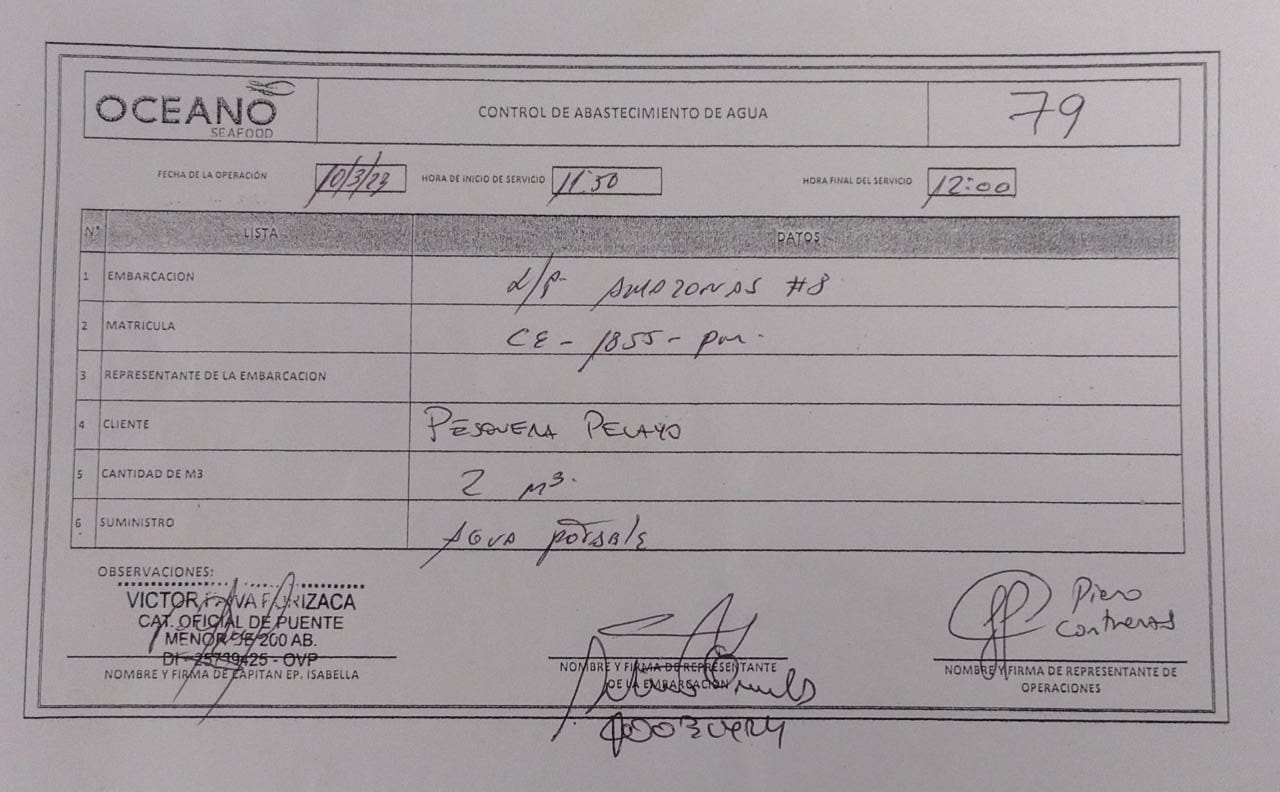 OCEANO
SEAFOOD
CONTROL DE ABASTECIMIENTO DE AGUA
79
FECHA DE LA OPERACIÓN 10/3/23 HORA DE INICIO DE SERVICIO 11:30 HORA FINAL DEL SERVICIO 12:00
N° LISTA DATOS
1 EMBARCACION L/P AMAZONAS #8
2 MATRICULA CE - 1855 - PM.
3 REPRESENTANTE DE LA EMBARCACION
4 CLIENTE PESQUERA PELAYO
5 CANTIDAD DE M3 2 M3.
6 SUMINISTRO AGUA POTABLE
OBSERVACIONES:
VICTOR
CAT. OFICIAL DE PUENTE
MENOR DE 200 AB.
NOMBRE Y FIRMA DE CAPITAN EP. ISABELLA
NOMBRE Y FIRMA DE REPRESENTANTE
DE LA EMBARCACION
Piero
Contreras
NOMBRE Y FIRMA DE REPRESENTANTE DE
OPERACIONES